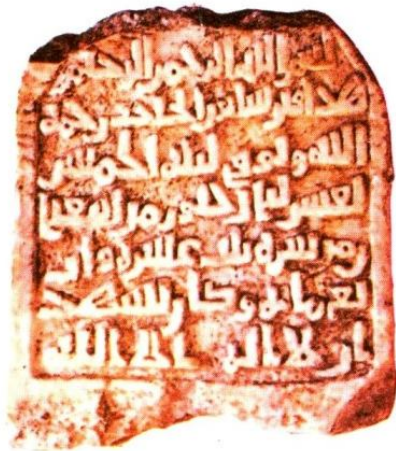 بسم الله الرحمن الرحيم
هذا قبر رحمة
الله وتوفي ليلة الخميس
لعشر ليال خلون من شعبا
ن من سنة ثلث عشرة وار
بع مائة وكان يشهد
ان لا اله الا الله